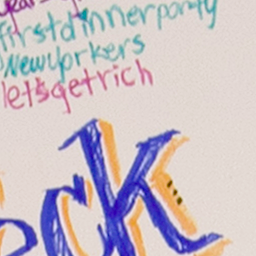 firstdinnerparty
Newyorkers
let'sgetrich
ck